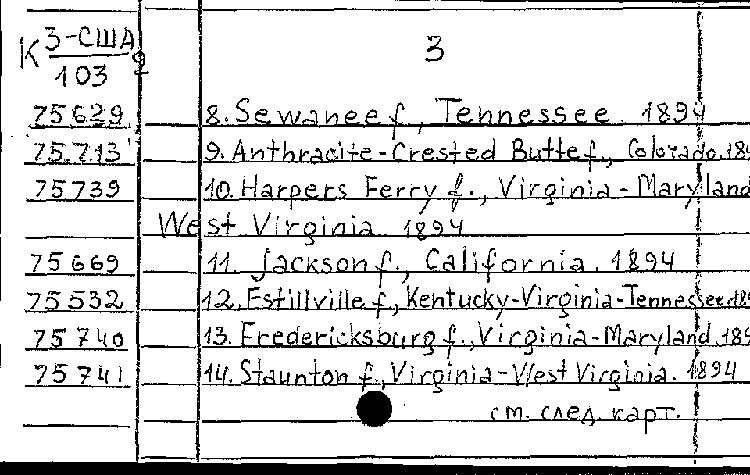 К 3-США 9 3
103
75629 8. Sewanee f., Tennessee. 1894
75713 9. Anthracite-Crested Butte f., Colorado. 189
75739 10. Harpers Ferry f., Virginia-Maryland
West Virginia. 1894
75669 11. Jackson f., California. 1894
75532 12. Estillville f., Kentucky-Virginia-Tennessee 189
75740 13. Fredericksburg f., Virginia-Maryland. 189
75741 14. Staunton f., Virginia-West Virginia. 1894
см. след. карт.